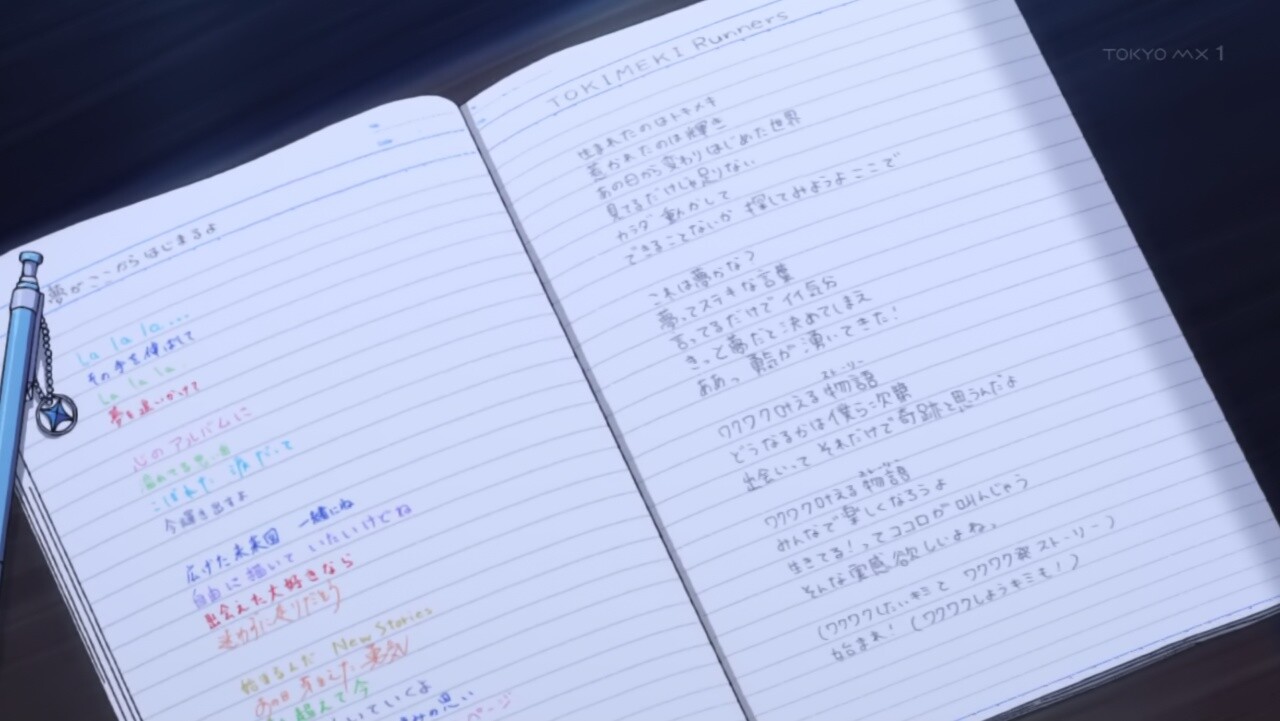 TOKYO MX 1
夢がここからはじまるよ
La la la...
その手を伸ばして
La la la
夢を追いかけて
心のアルバムに
こぼれた涙だって
今輝き出すよ
広げた未来図 一緒にね
自由に描いていたいけどね
出会えた大好きなら
迷わずに走りだそう
始まるんだ New Stories
あの日 勇気
今
ていくよ
思い
ページ
TOKIMEKI Runners
生まれたのはトキメキ
惹かれたのは輝き
あの日から変わりはじめた世界
見てるだけじゃ足りない
カラダ動かして
できることないか 探してみようよここで
これは夢かな?
夢ってステキな言葉
言ってるだけで イイ気分
きっと夢だと決めてしまえ
ああっ 勇気が湧いてきた!
ストーリー
ワクワク叶える物語
どうなるかは僕ら次第
出会いって それだけで奇跡と思うんだよ
ストーリー
ワクワク叶える物語
みんなで楽しくなろうよ
生きてる!ってココロが叫んじゃう
そんな実感欲しいよね。
(ワクワクしたいキミと ワクワク発ストーリー)
始まれ! (ワクワクしようキミも!)